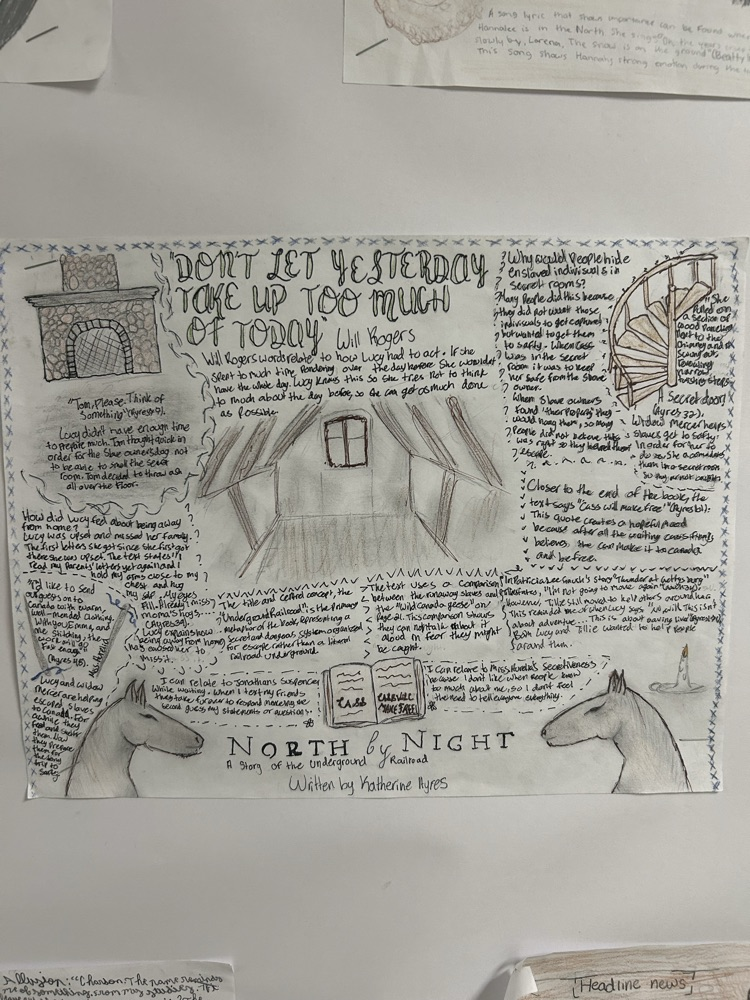 A song lyric that shows importance can be found
Hannalee is in the North. She sings "Oh the years
slowly by, Lorena, The snow is on the ground" (Beatty
This song shows Hannah's strong emotion during the
"DON'T LET YESTERDAY
TAKE UP TOO MUCH
OF TODAY" Will Rogers
Will Rogers words relate to how Lucy had to act. If she
spent to much time Pondering over the day before she wouldn't
have the whole day. Lucy knows this so she tries not to think
to much about the day before, so she can get as much done
as Possible.
"Tom, Please. Think of
Something" (Ayres 9).
Lucy didn't have enough time
to prepare much. Tom thought quick in
order for the slave owners dog not
to be able to smell the secret
room. Tom decided to throw ash
all over the floor.
Why would People hide
enslaved indivisuals in
secret rooms?
Many People did this because
they did not want these
indivisuals to get captured
but wanted to get them
to safty. When Cass
was in the secret
room it was to keep
her safe from the slave
owner.
When Slave owners
found their property they
would hang them, so many
People did not believe this
was right so they helped them
escape.
"She
Pulled on
a section of
wood Paneling
next to the
chimney and it
swung out,
revealing
narrow
turning steps.
A Secret door!"
(Ayres 32).
Widow Mercer helps
slaves get to safty.
In order for her to
do so, she
them in a secret room
so they are not caught.
How did Lucy feel about being away
from home?
Lucy was upset and missed her family.
The first letters she got since she first got
there she was upset. The text states "I
read my Parents' letters yet again and I
hold my arms close to my
chest and hug
my self. My eyes
fill. Already I miss
mama's hugs...."
(Ayres 39).
Lucy explains how
being away from home
has caused her to
miss it.
Closer to the end of the book, the
text says "Cass will make free"
This quote creates a hopeful mood
because after all the waiting
believes she can make it to canada
and be free.
"I'd like to send
our guests on to
Canada with warm,
well-mended clothing.
With you, Emma, and
me stitching, the
work will go
fast enough"
(Ayres 48).
Miss Aurelia
Lucy and widow
Mercer are helping
escaped slaves
to canada. For
awhile they
feed and
them. Now
they Prepare
them for
the long
trip to
safty.
The title and central concept, the
"Underground Railroad", is the Primary
metaphor of the book, representing a
secret and dangerous system organized
for escape rather than a literal
railroad underground.
The text uses a Comparison
between the runaway slaves and
the "wild Canada geese" on
Page 211. This comparison shows
they can not talk about it
aloud in fear they might
be caught.
In Patricia Lee Gauch's story "Thunder at Gettysburg"
"I'm not going to move again"
However, Tillie still moved to help others around her.
This reminded me of when Lucy says
about adventure... This is about saving lives"
Both Lucy and Tillie wanted to help People
around them.
I can relate to Jonathans suspency
while waiting. When I text my friends
they take forever to respond making me
second guess my statements or questions.
CASS
CAN/WILL
"MAKE FREE"
I can relate to Miss Aurelia's secretiveness
because I don't like when people know
to much about me, so I don't feel
the need to tell anyone everything.
NORTH by NIGHT
A Story of the Underground Railroad
Written by Katherine Ayres
Allusion: "Charson. The name reminds
me of something from my studies. The
[Headline news]